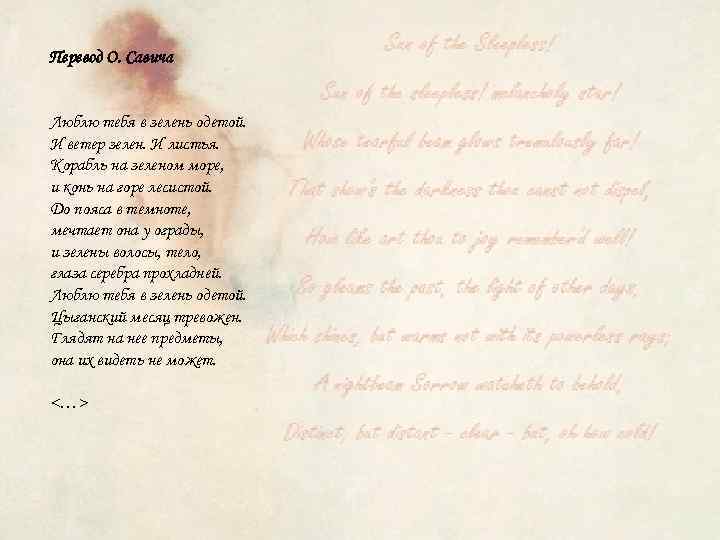 Перевод О. Савича
Люблю тебя в зелень одетой.
И ветер зелен. И листья.
Корабль на зеленом море,
и конь на горе лесистой.
До пояса в темноте,
мечтает она у ограды,
и зелены волосы, тело,
глаза серебра прохладней.
Люблю тебя в зелень одетой.
Цыганский месяц тревожен.
Глядят на нее предметы,
она их видеть не может.
<…>
Sun of the Sleepless!
Sun of the sleepless! melancholy star!
Whose tearful beam glows tremulously far!
That show's the darkness thou canst not dispel,
How like art thou to joy remember'd well!
So gleams the past, the light of other days,
Which shines, but warms not with its powerless rays;
A nightbeam Sorrow watcheth to behold,
Distinct, but distant – clear – but, oh how cold!